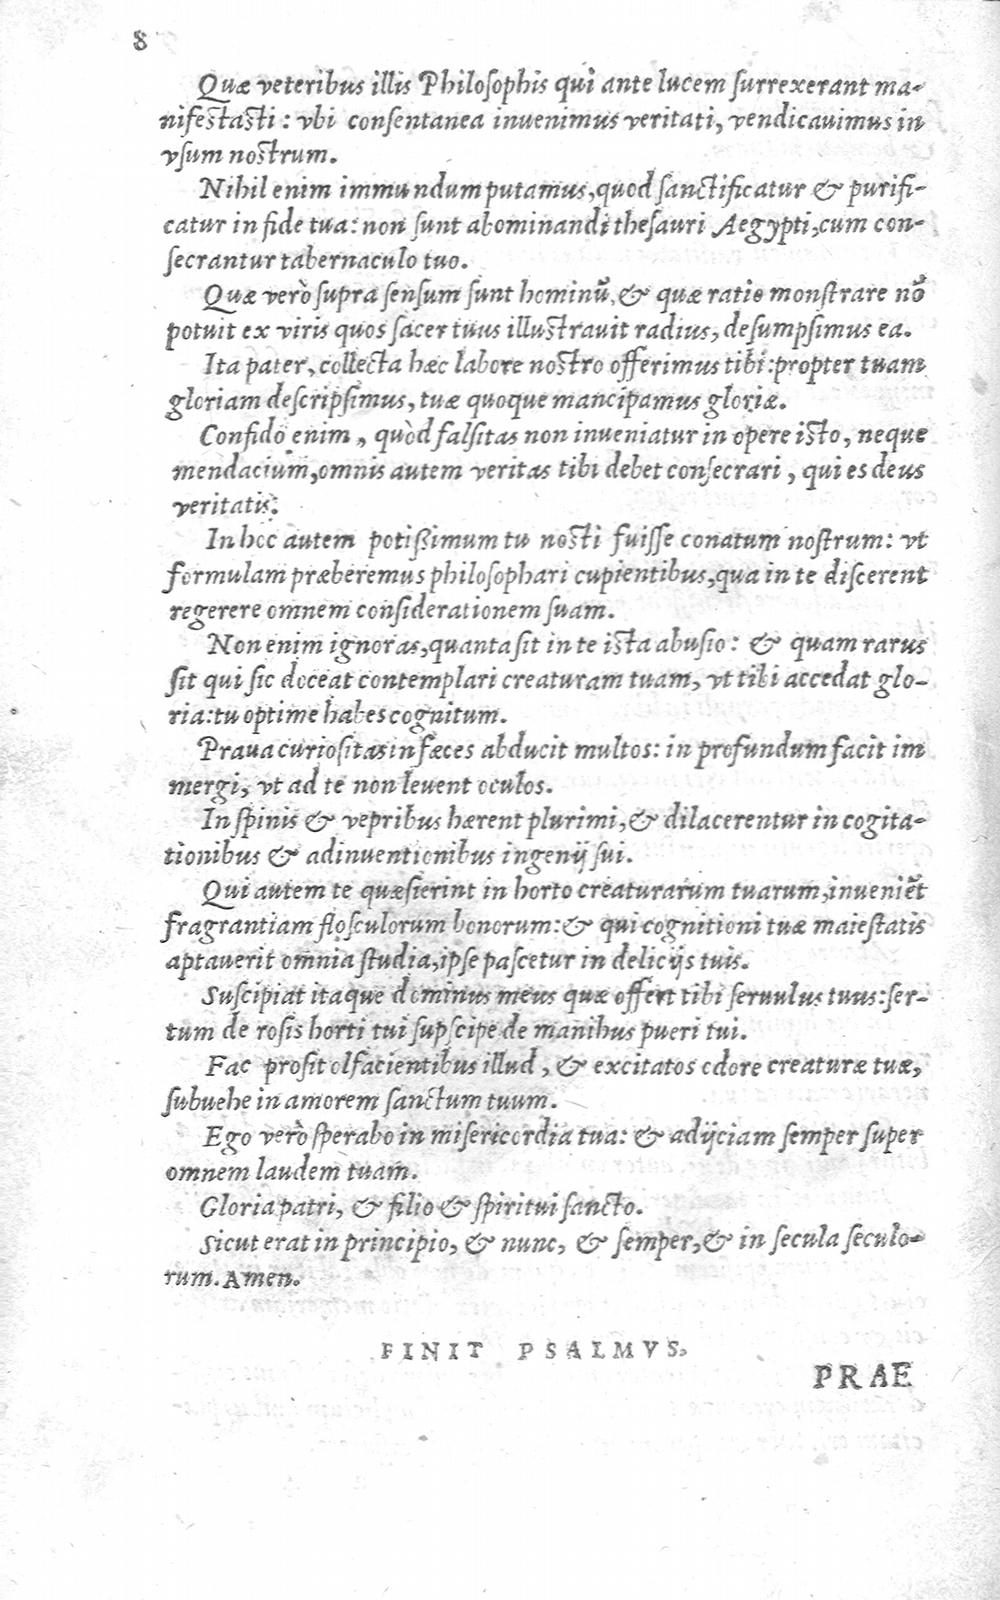 8
Quæ veteribus illis Philoſophis qui ante lucem ſurrexerant ma-
nifeſtaſti : vbi conſentanea inuenimus veritati, vendicauimus in
vſum noſtrum.
Nihil enim immundum putamus, quod ſanctificatur & purifi-
catur in fide tua: non ſunt abominandi theſauri Aegypti, cum con-
ſecrantur tabernaculo tuo.
Quæ verò ſupra ſenſum ſunt hominũ, & quæ ratio monſtrare nõ
potuit ex viris quos ſacer tuus illuſtrauit radius, deſumpſimus ea.
Ita pater, collecta hæc labore noſtro offerimus tibi: propter tuam
gloriam deſcripſimus, tuæ quoque mancipamus gloriæ.
Confido enim, quòd falſitas non inueniatur in opere iſto, neque
mendacium, omnis autem veritas tibi debet conſecrari, qui es deus
veritatis.
In hoc autem potißimum tu noſti fuiſſe conatum noſtrum: vt
formulam præberemus philoſophari cupientibus, qua in te diſcerent
regerere omnem conſiderationem ſuam.
Non enim ignoras, quanta ſit in te iſta abuſio: & quam rarus
ſit qui ſic doceat contemplari creaturam tuam, vt tibi accedat glo-
ria: tu optime habes cognitum.
Praua curioſitas in fæces abducit multos: in profundum facit im
mergi, vt ad te non leuent oculos.
In ſpinis & vepribus hærent plurimi, & dilacerentur in cogita-
tionibus & adinuentionibus ingenij ſui.
Qui autem te quæſierint in horto creaturarum tuarum, inueniẽt
fragrantiam floſculorum bonorum: & qui cognitioni tuæ maieſtatis
aptauerit omnia ſtudia, ipſe paſcetur in delicijs tuis.
Suſcipiat itaque dominus meus quæ offert tibi ſeruulus tuus: ſer-
tum de roſis horti tui ſupſcipe de manibus pueri tui.
Fac proſit olfacientibus illud, & excitatos odore creaturæ tuæ,
ſubuehe in amorem ſanctum tuum.
Ego verò ſperabo in miſericordia tua: & adijciam ſemper ſuper
omnem laudem tuam.
Gloria patri, & filio & ſpiritui ſancto.
Sicut erat in principio, & nunc, & ſemper, & in ſecula ſeculo-
rum. Amen.
FINIT PSALMVS.
PRAE